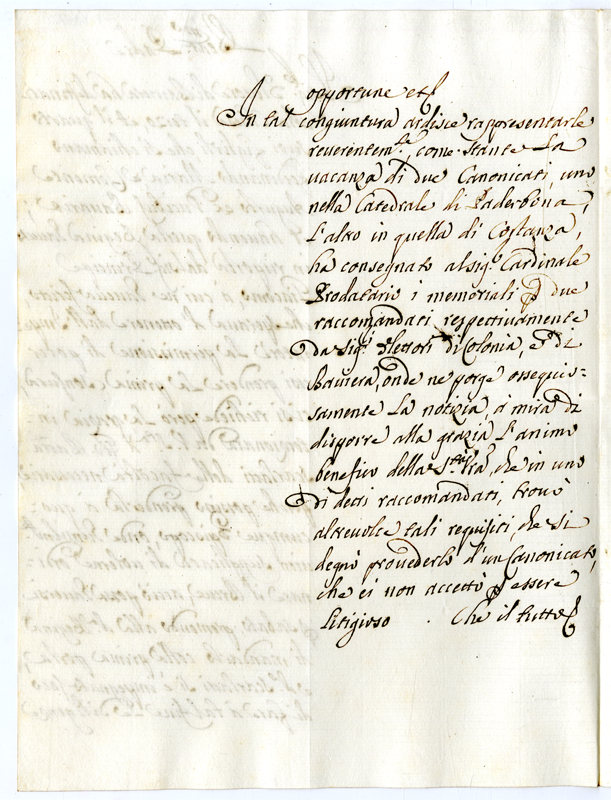 opportune etc.
In tal congiuntura ardisce rappresentarle
reverentem.te, come stante la
vacanza di due Canonicati, uno
nella Catedrale di Paderbona,
l'altro in quella di Costanza,
ha consegnato al sig.r Cardinale
Prodatario i memoriali p due
raccomandati respettivamente
da Sig.ri Elettori di Colonia, e di
Baviera, onde ne porge ossequio=
samente la notizia, à mira di
disporre alla grazia l'animo
benefico della S.tà V'ra, che in uno
di detti raccomandati, trovò
altrevolte tali requisiti, che si
degnò provederlo d'un Canonicato,
che ei non accettò p essere
litigioso. Che il tutto etc.